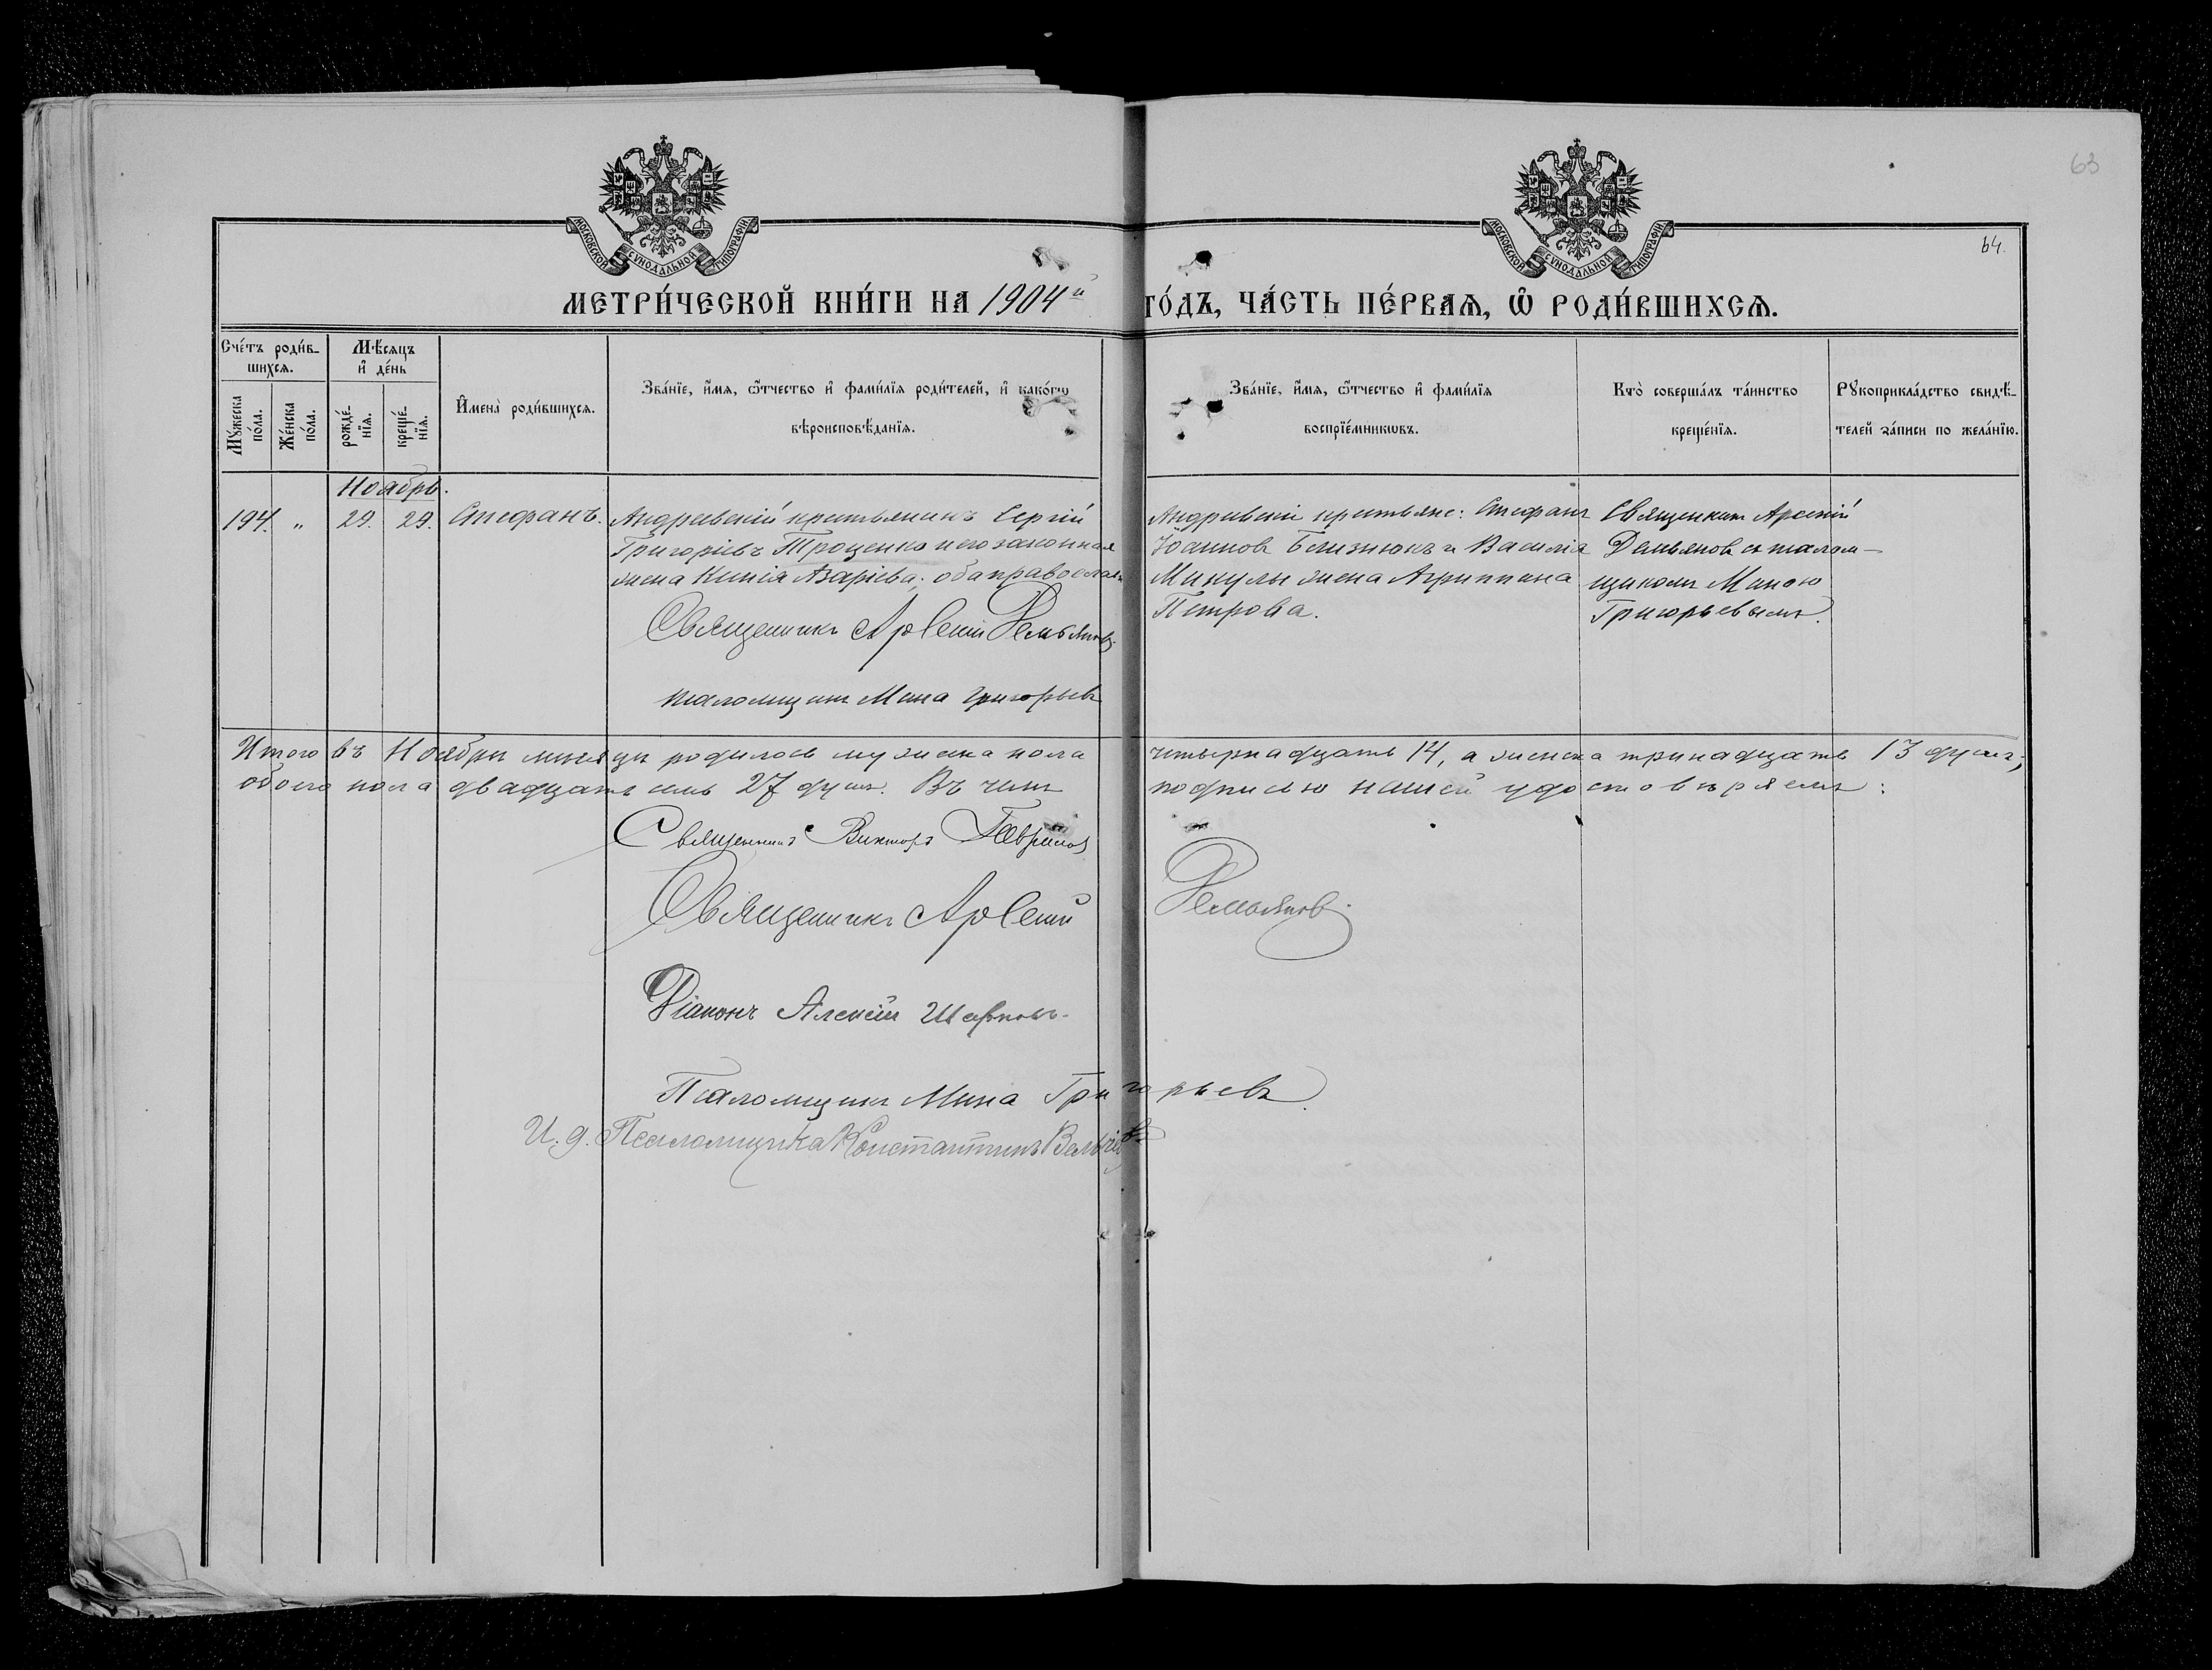 63
64.
МОСКОВСКОЙ СѴНОДАЛЬНОЙ ТИПОГРАФІИ
МОСКОВСКОЙ СѴНОДАЛЬНОЙ ТИПОГРАФІИ
МЕТРИ́ЧЕСКОЙ КНИ́ГИ НА 1904й ГО́ДЪ, ЧА́СТЬ ПЕ́РВАѦ, Ѽ РОДИ́ВШИХСѦ.
Сче́тъ роди́в-
шихсѧ.
Мꙋ́жеска по́ла.
Же́нска по́ла.
Мѣ́сѧцъ
и҆ де́нь
рожде́-нїѧ.
креще́-нїѧ.
И҆мена̀ роди́вшихсѧ.
Зва́нїе, и҆́мѧ, ѻ҆́тчество и҆ фами́лїѧ роди́телей, и҆ како́гѡ
вѣроисповѣ́данїѧ.
Зва́нїе, и҆́мѧ, ѻ҆́тчество и҆ фами́лїѧ
воспрїе́мникѡвъ.
Кто̀ соверша́лъ та́инство
креще́нїѧ.
Рꙋкоприкла́дство свидѣ́-
телей за́писи по жела́нїю.
Ноябрь.
194. " 29. 29. Стефанъ.
Андреевскій крестьянинъ Сергій
Григоріевъ Троценко и его законная
жена Ксенія Азаріева; оба православн
Священникъ Арсеній Демьяновъ
псаломщикъ Мина Григорьевъ
Андреевскіе крестьяне: Стефанъ
Іоанновъ Близнюкъ и Василія
Микулы жена Агриппина
Петрова.
Священникъ Арсеній
Демьяновъ съ псалом-
щикомъ Миною
Григорьевымъ.
Итого въ Ноябрѣ мѣсяцѣ родилось мужеска пола четырнадцать 14, а женска тринадцать 13 душъ;
обоего пола двадцать семь 27 душъ. Въ чемъ подписью нашей удостовѣряемъ:
Священникъ Викторъ Гавриловъ
Священникъ Арсеній Демьяновъ
Діаконъ Алексій
Псаломщикъ Мина Григорьевъ
И. д. Псаломщика Константинъ